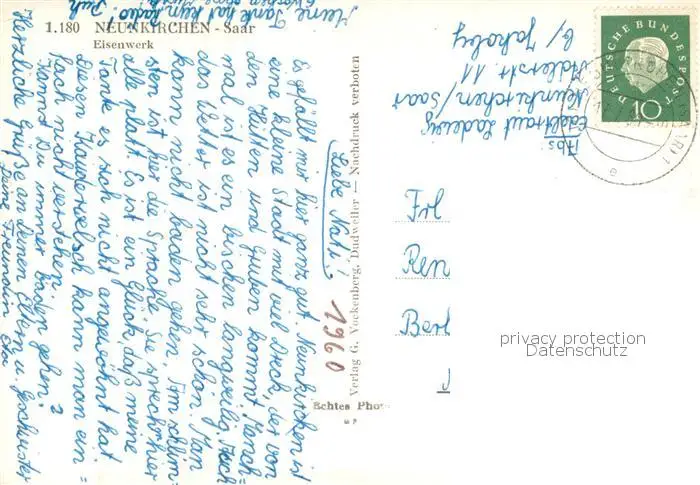 1.180 NEUNKIRCHEN - Saar
Eisenwerk
Meine Tante hat kein Radio.
Liebe Nati!
Es gefällt mir hier ganz gut. Neunkirchen ist
eine kleine Stadt mit viel Dreck, der von
den Hütten und Gruben kommt. Manch-
mal ist es ein bischen langweilig. Auch
das Wetter ist nicht sehr schön. Man
kann nicht baden gehen. Am schlim-
sten ist hier die Sprache. Sie sprechen hier
alle platt. Es ist ein Glück, daß meine
Tante es sich nicht angewöhnt hat.
Diesen Kauderwelsch kann man ein-
fach nicht verstehen.
Kannst Du immer baden gehen?
Herzliche Grüße an deinen Eltern u. Geschwister
Deine Freundin Eva
1960
Verlag G. Vockenberg, Dudweiler — Nachdruck verboten
Echtes Pho
Abs:
Edeltraut Ludewig
Neunkirchen/Saar
Adlerstr. 11
b/ Jakoby
DEUTSCHE BUNDESPOST
10
e
Frl
Ren
Berl
privacy protection
Datenschutz